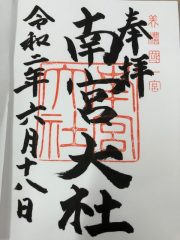 美濃國一宮
奉拝
南宮大社
令和二年六月十八日